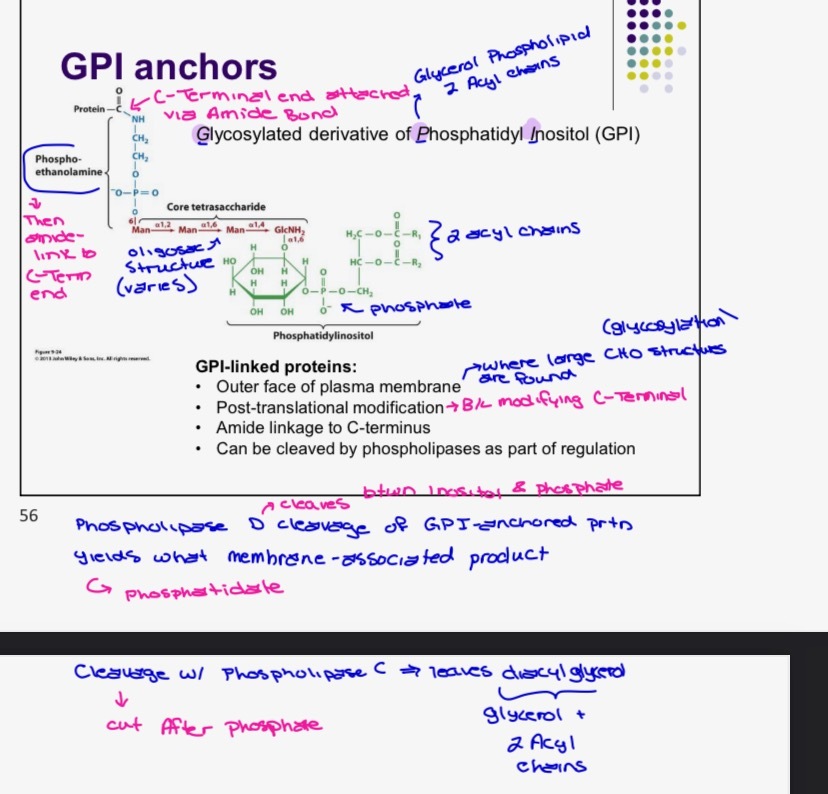 GPI anchors
Glycerol Phospholipid
2 Acyl chains
C-Terminal end attached
via Amide Bond
Glycosylated derivative of Phosphatidyl Inositol (GPI)
O
Protein—C
NH
CH₂
CH₂
O
⁻O—P=O
O
Phospho-
ethanolamine
Then
amide-
link to
C-Term
end
Core tetrasaccharide
6 Man α1,2 Man α1,6 Man α1,4 GlcNH₂
α1,6
oligosac
structure
(varies)
O
H₂C—O—C—R₁
O
HC—O—C—R₂
2 acyl chains
H O
HO OH H H O
H H H O—P—O—CH₂
OH OH O⁻
phosphate
Phosphatidylinositol
Figure 9-24
© 2013 John Wiley & Sons, Inc. All rights reserved.
(glycosylation)
GPI-linked proteins:
where large CHO structures
are found
• Outer face of plasma membrane
• Post-translational modification → B/c modifying C-Terminal
• Amide linkage to C-terminus
• Can be cleaved by phospholipases as part of regulation
cleaves btwn Inositol & Phosphate
56
Phospholipase D cleavage of GPI-anchored prtn
yields what membrane-associated product
↳ phosphatidate
Cleavage w/ Phospholipase C ⇒ leaves diacylglycerol
↓
cut After phosphate
glycerol +
2 Acyl
chains